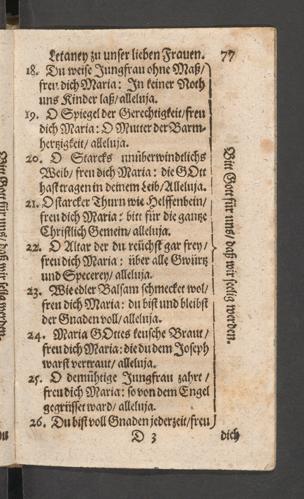 Letaney zu unser lieben Frauen. 77
18. Du weise Jungfrau ohne Maß/
freu dich Maria: In keiner Noth
uns Kinder laß/ alleluja.
19. O Spiegel der Gerechtigkeit/ freu
dich Maria: O Mutter der Barm-
hertzigkeit/ alleluja.
20. O Starcks unüberwindtlichs
Weib/ freu dich Maria: die GOtt
hast tragen in deinem Leib/ Alleluja.
21. O starcker Thurn wie Helffenbein/
freu dich Maria: bitt für die gantze
Christlich Gemein/ alleluja.
22. O Altar der du reüchst gar frey/
freu dich Maria: über alle Gwürtz
und Specerey/ alleluja.
23. Wie edler Balsam schmecket wol/
freu dich Maria: du bist und bleibst
der Gnaden voll/ alleluja.
24. Maria GOttes keusche Braut/
freu dich Maria: die du dem Joseph
warst vertraut/ alleluja.
25. O demühtige Jungfrau zahrt/
freu dich Maria: so von dem Engel
gegrüsset ward/ alleluja.
26. Du bist voll Gnaden jederzeit/ freu
D 3 dich
Bitt Gott für uns/ daß wir seelig werden.